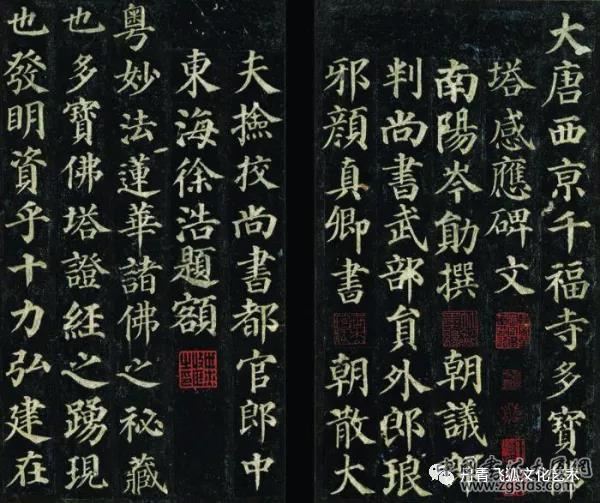 大唐西京千福寺多寶
塔感應碑文
南陽岑勛撰 朝議郎
判尚書武部員外郎琅
邪顏真卿書 朝散大
夫撿挍尚書都官郎中
東海徐浩題額
粵妙法蓮華諸佛之秘藏
也多寶佛塔證經之踴現
也發明資乎十力弘建在
丹青飞狐文化艺术
www.zgsfds.com